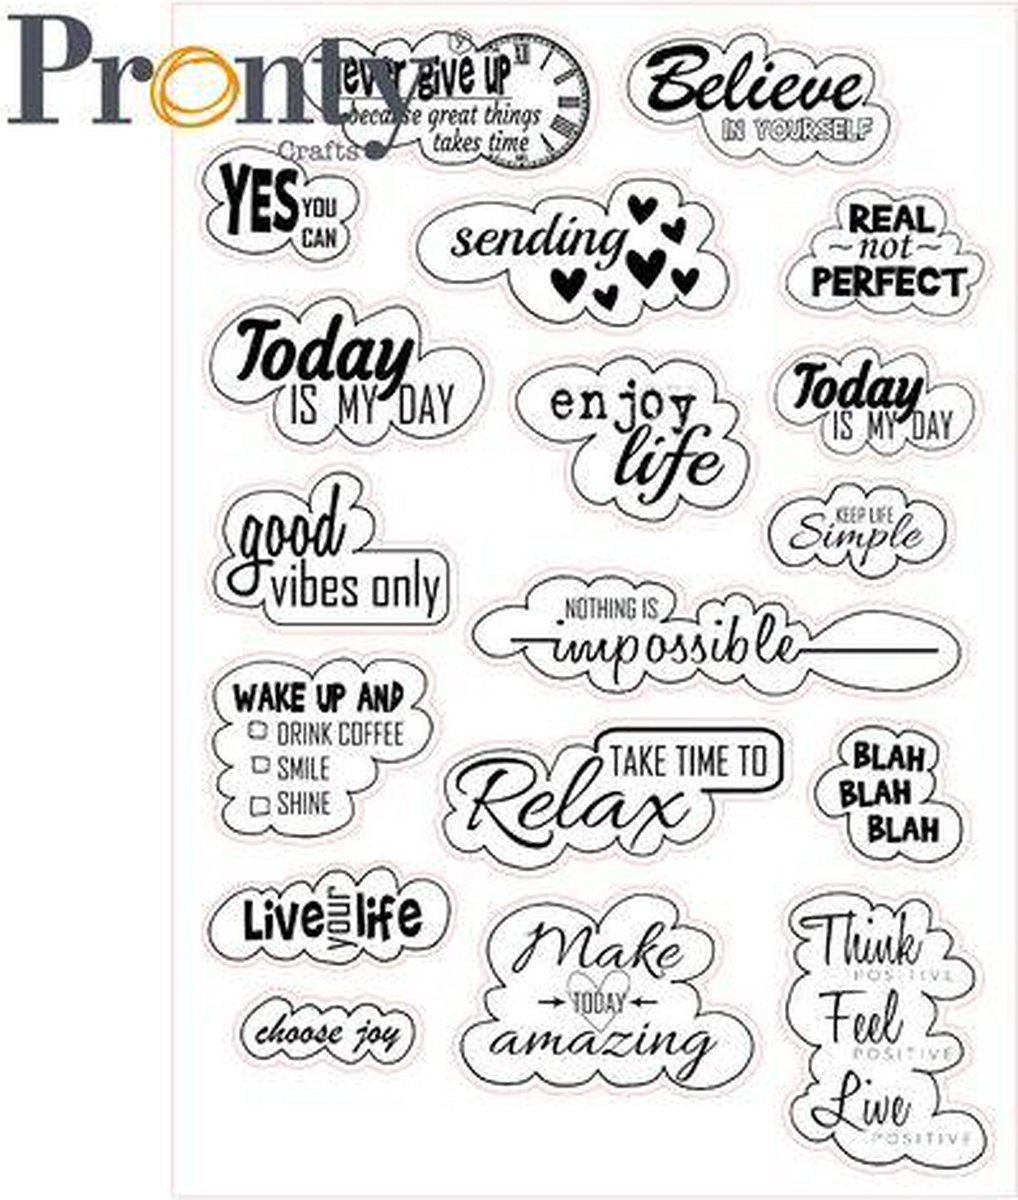 Pronty
Crafts
never give up
because great things
takes time
Believe
IN YOURSELF
YES YOU
CAN
sending
REAL
~not~
PERFECT
Today
IS MY DAY
enjoy
life
Today
IS MY DAY
good
vibes only
KEEP LIFE
Simple
NOTHING IS
impossible
WAKE UP AND
DRINK COFFEE
SMILE
SHINE
TAKE TIME TO
Relax
BLAH
BLAH
BLAH
Live your life
Make
TODAY
amazing
Think
POSITIVE
Feel
POSITIVE
Live
POSITIVE
choose joy